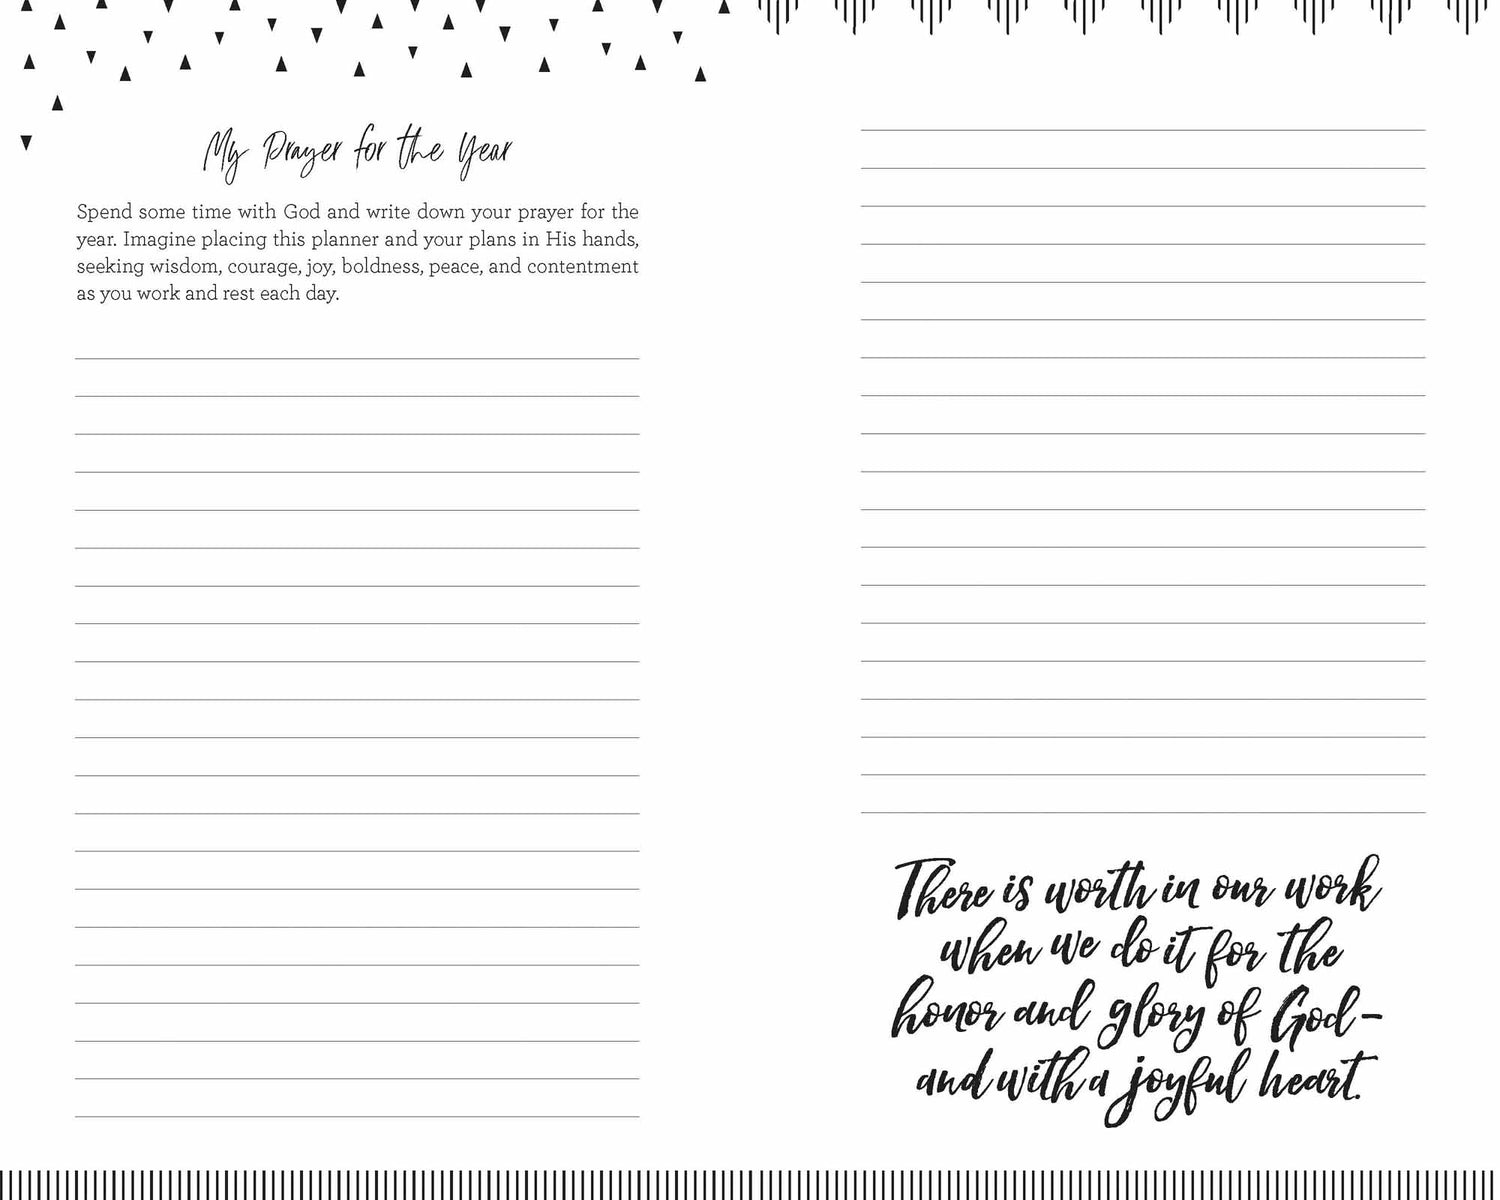 My Prayer for the Year
Spend some time with God and write down your prayer for the
year. Imagine placing this planner and your plans in His hands,
seeking wisdom, courage, joy, boldness, peace, and contentment
as you work and rest each day.
There is worth in our work
when we do it for the
honor and glory of God–
and with a joyful heart.